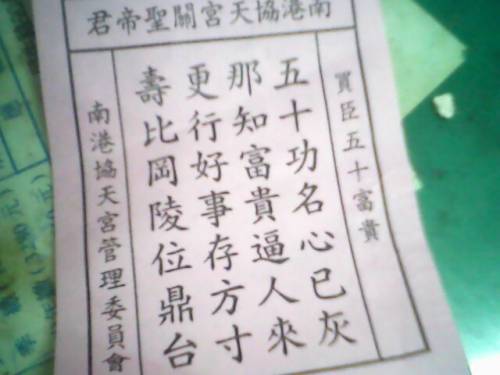 南港協天宮關聖帝君
買臣五十富貴
五十功名心已灰
那知富貴逼人來
更行好事存方寸
壽比岡陵位鼎台
南港協天宮管理委員會